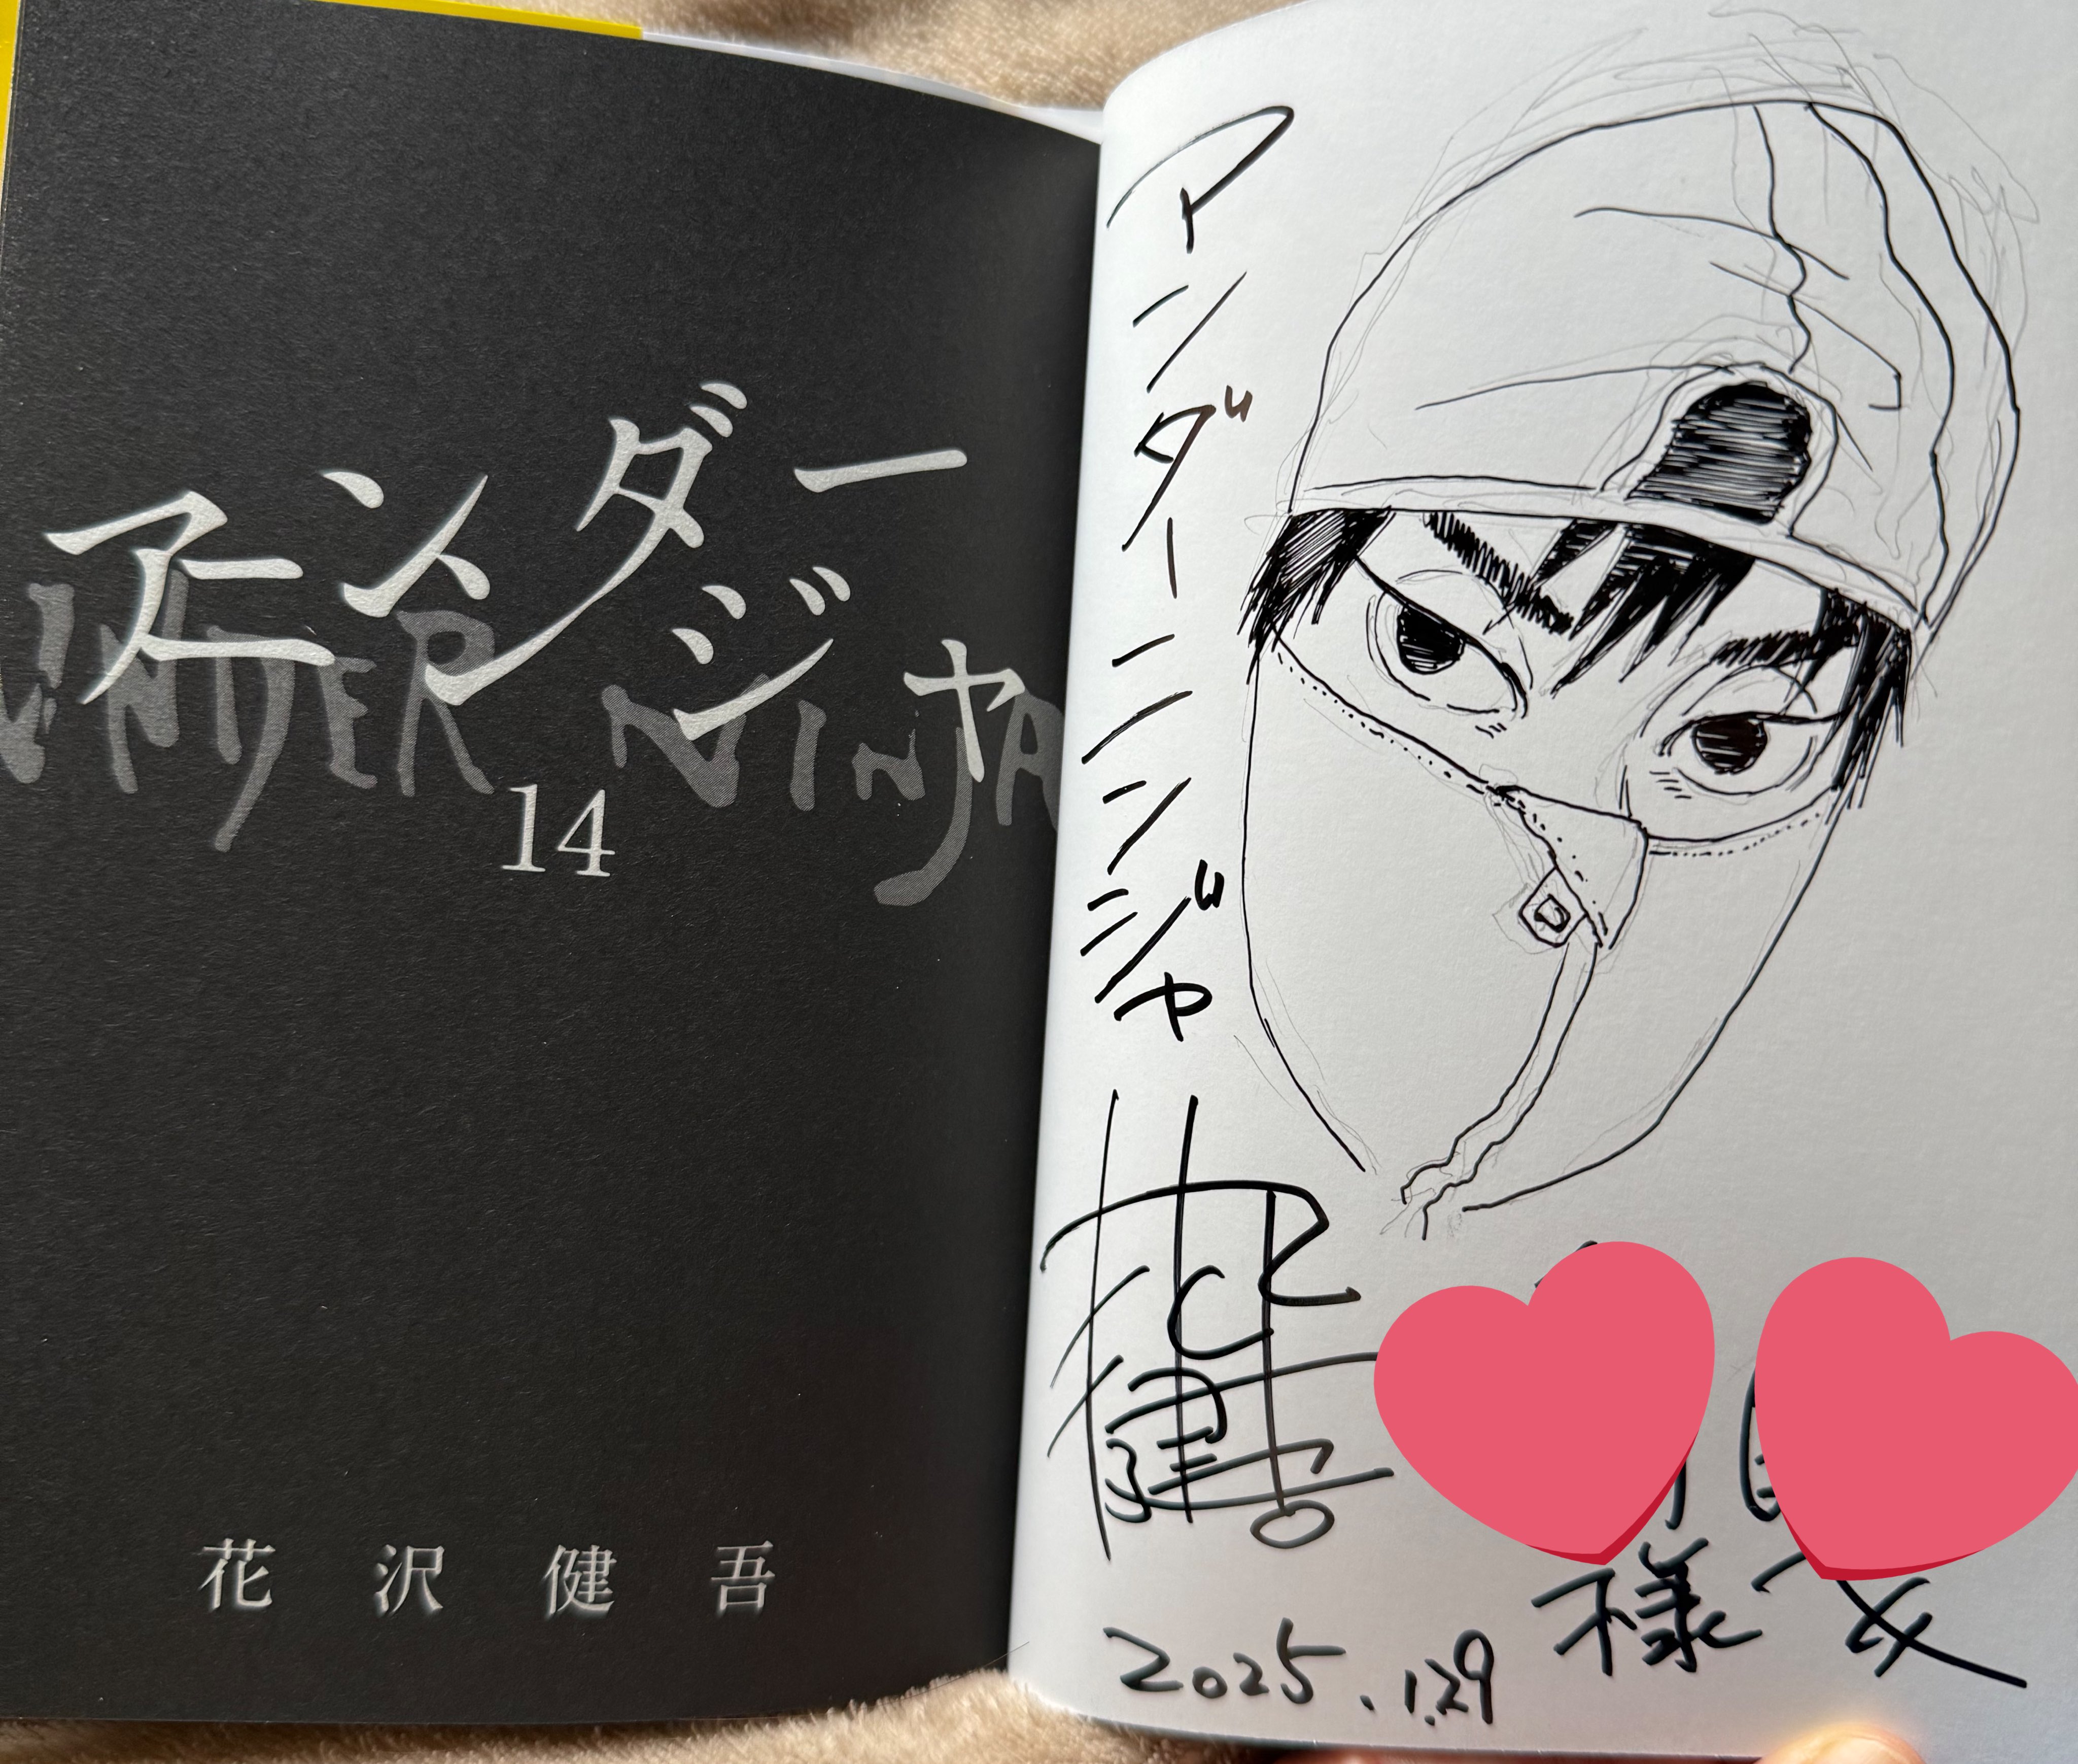 アンダー
ニンジャ
UNDER NINJA
14
花沢健吾
アンダーニンジャ
花沢健吾
様
2025.1.29